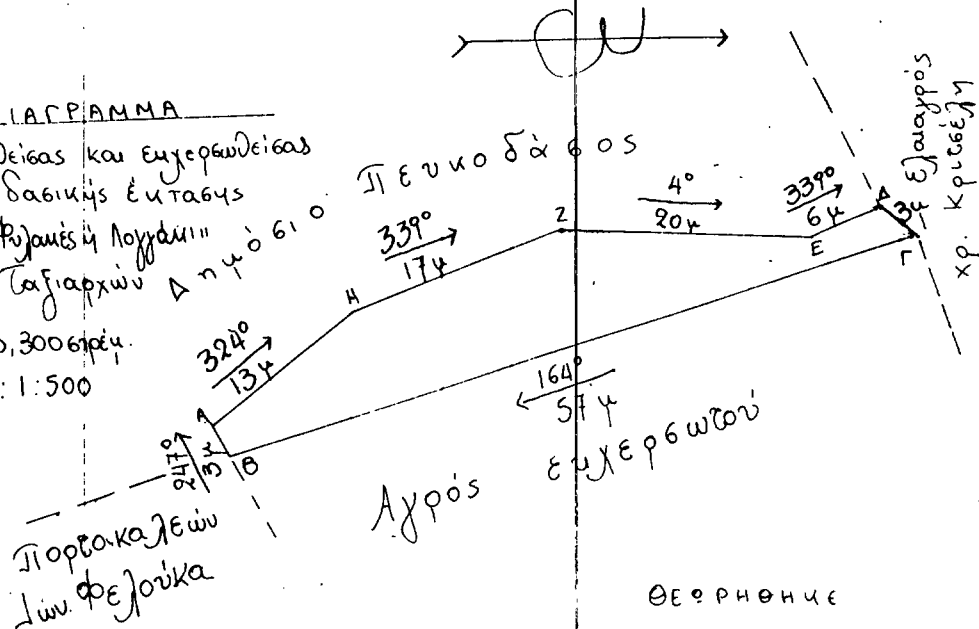 ΔΙΑΓΡΑΜΜΑ
και εκχερσωθείσας
δασικής έκτασης
Φυλακές ή Λογγάκι"
Ταξιαρχών
0,300 στρέμ.
: 1:500
Δημόσιο Πευκοδάσος
247°
3μ
324°
13μ
339°
17μ
4°
20μ
339°
6μ
3μ
164°
57μ
Α
Β
Η
Ζ
Ε
Δ
Γ
Ελαιαγρός
Χρ. Κριτσέλη
Αγρός εκχερσωτού
Πορτοκαλεών
Ιών. Φελούκα
ΘΕΩΡΗΘΗΚΕ